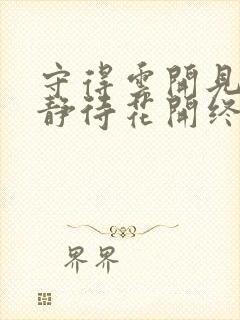 守得雲開見
静待花開終
界界